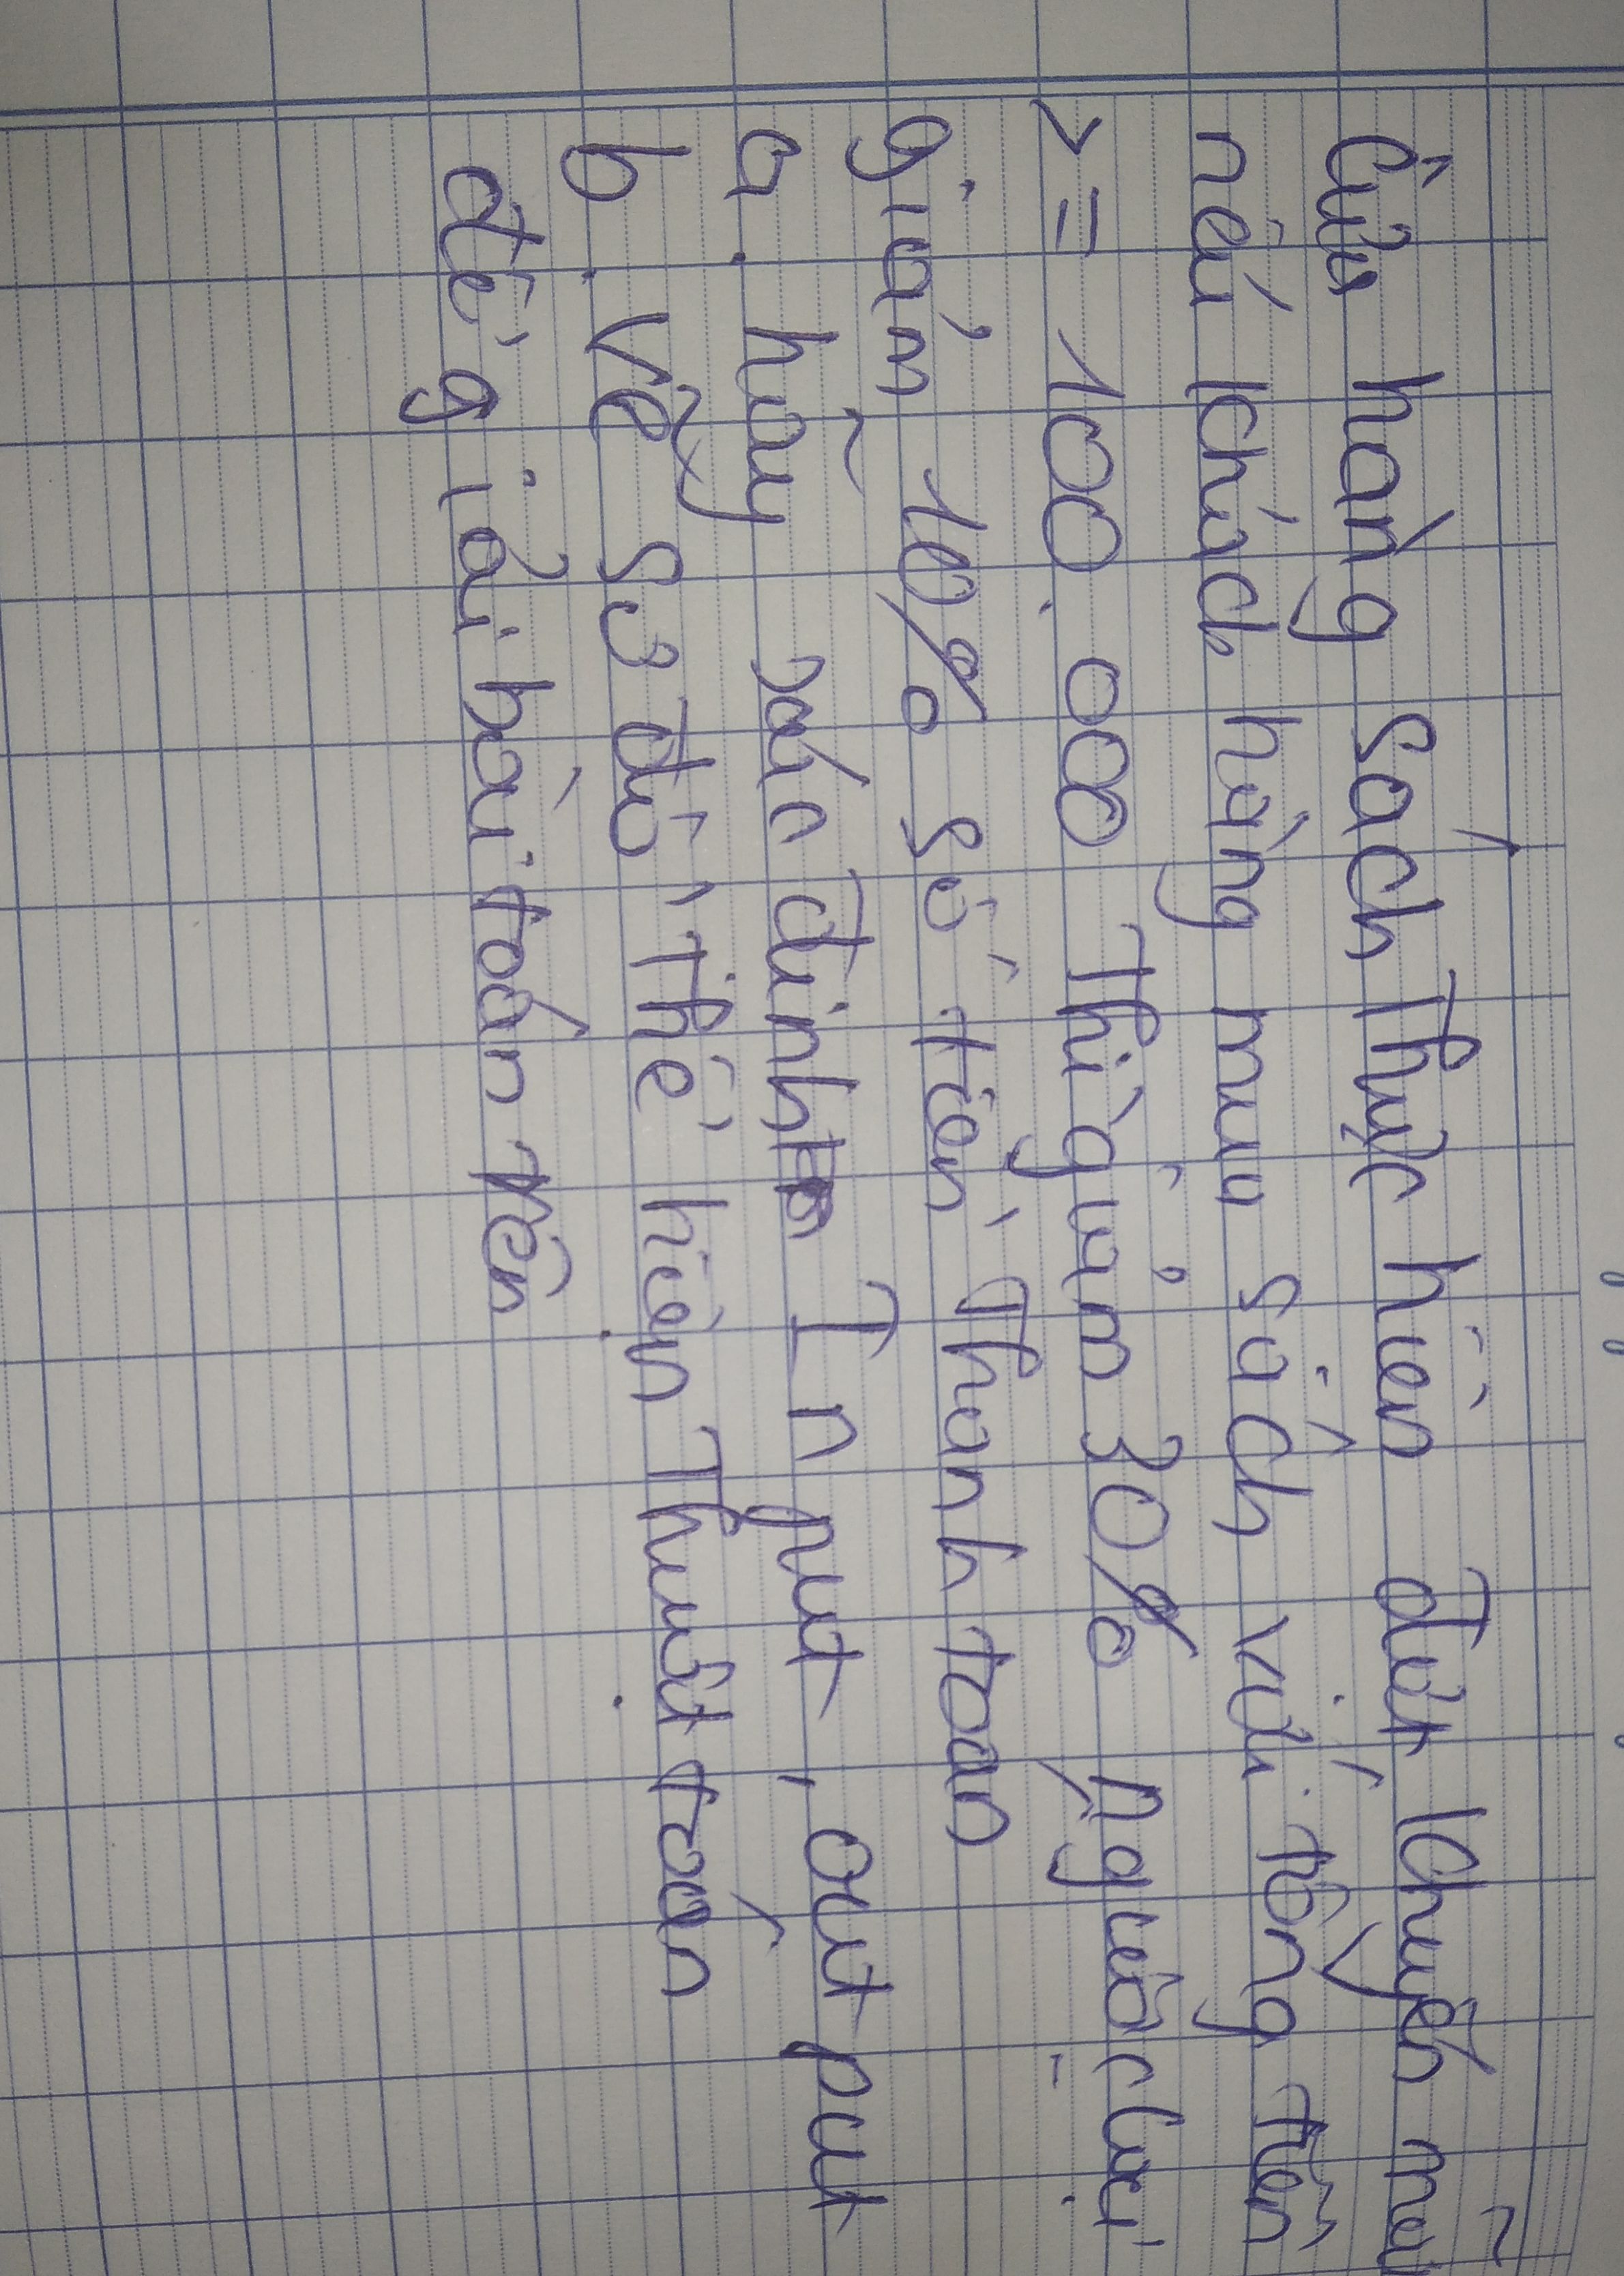 Cửa hàng sách Thực hiện đợt khuyến mãi
nếu khách hàng mua sách với tổng tiền
>= 100.000 Thì giảm 30% Ngược lại
giảm 10% số tiền Thanh toan
a. hãy xác định Input, output
b. Vẽ sơ đồ Thể hiện Thuật toán
để giải bài toán trên